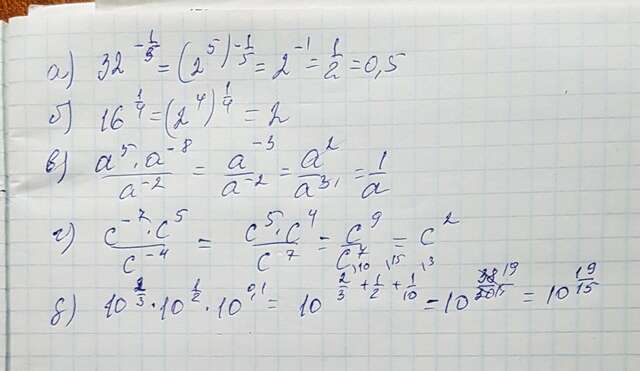 а) 32^(-1/5) = (2^5)^(-1/5) = 2^(-1) = 1/2 = 0,5
б) 16^(1/4) = (2^4)^(1/4) = 2
в) (a^5 · a^(-8))/(a^(-2)) = a^(-3)/a^(-2) = a^2/a^3 = 1/a
г) (c^(-7) · c^5)/(c^(-4)) = (c^5 · c^4)/(c^7) = c^9/c^7 = c^2
д) 10^(2/3) · 10^(1/2) · 10^(0,1) = 10^(2/3 + 1/2 + 1/10) = 10^(38/30 19/15) = 10^(19/15)